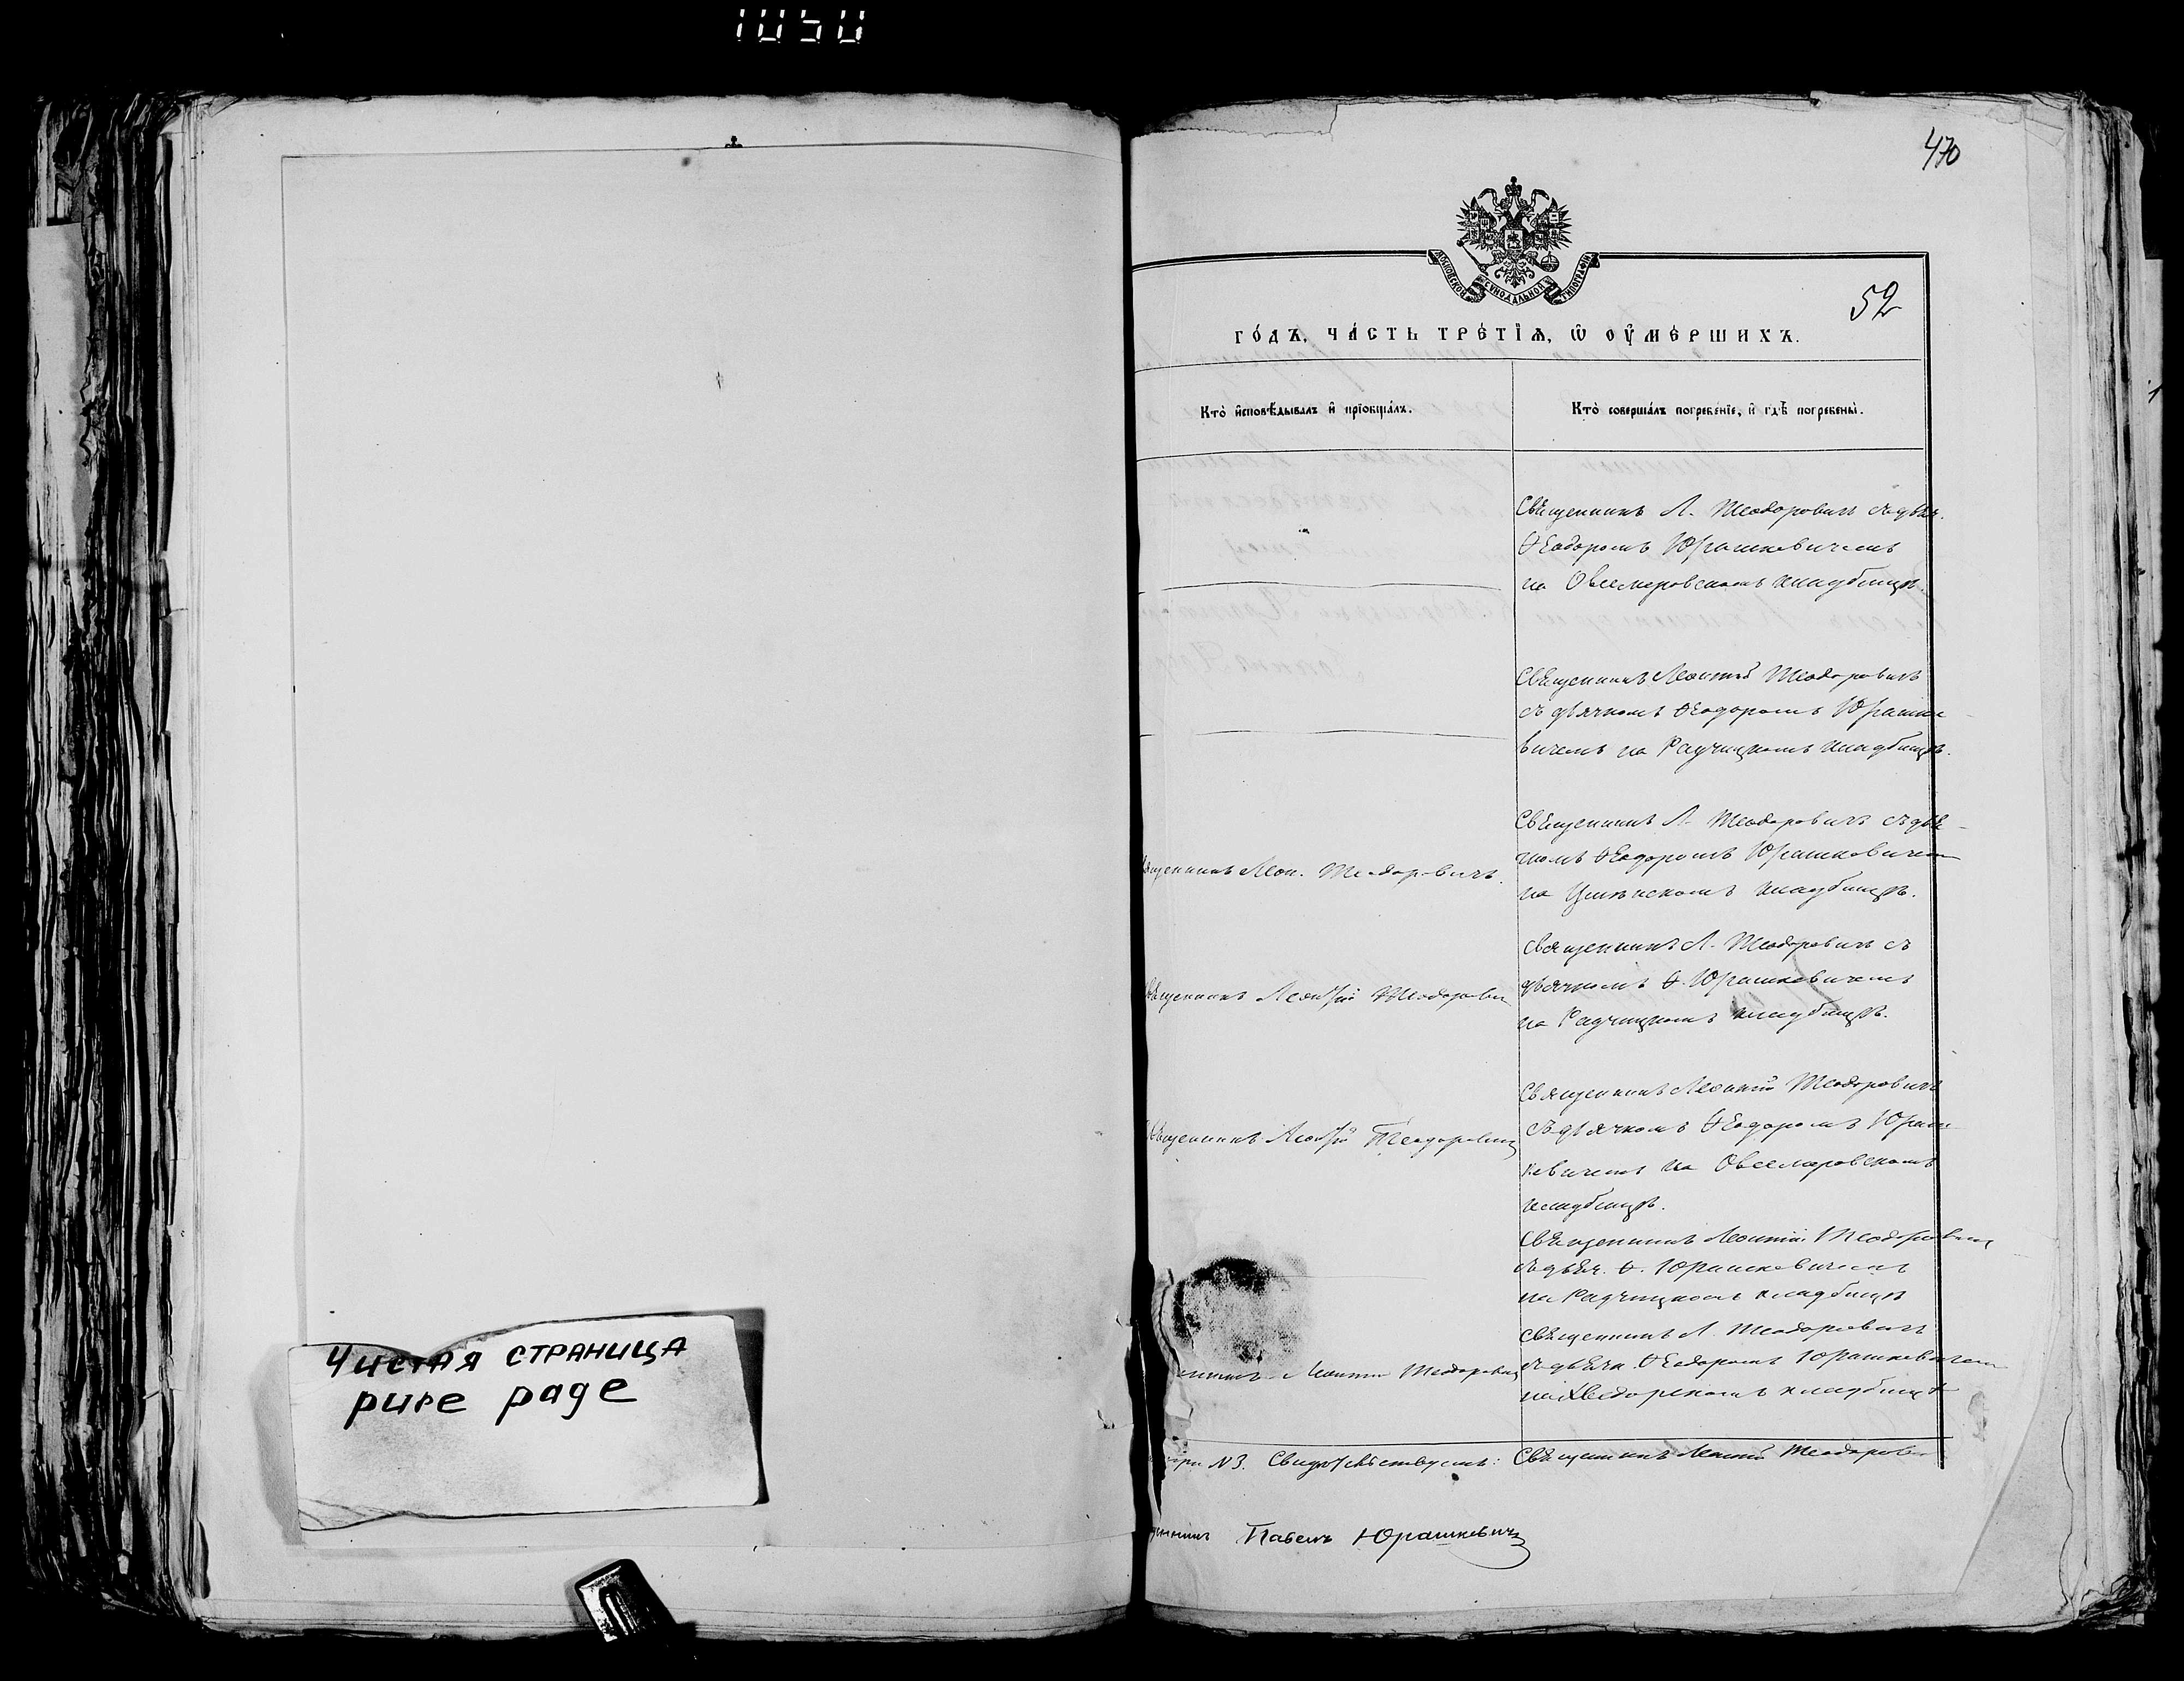 1050
Чистая страница
pure page
470
МОСКОВСКОЙ СѴНОДАЛЬНОЙ ТИПОГРАФІИ
52
ГО́ДЪ, ЧА́СТЬ ТРЕ́ТІѦ, Ѡ҆ ОУ҆МЕ́РШИХЪ.
Кто̀ и҆сповѣ́дывалъ и҆ прїобща́лъ.
Кто̀ соверша́лъ погребе́нїе, и҆ гдѣ̀ погребены̀.
Священникъ Л. Теодоровичъ съ дьяч.
Ѳеодоромъ Юрашкевичемъ
на Овсемировскомъ кладбищѣ.
Священникъ Леонтій Теодоровичъ
съ дьячкомъ Ѳеодоромъ Юрашке-
вичемъ на Радчицкомъ кладбищѣ.
ященникъ Леон. Теодоровичъ.
Священникъ Л. Теодоровичъ съ дья-
чкомъ Ѳеодоромъ Юрашковичем
на кладбищѣ.
вященникъ Леонтій Теодорович
Священникъ Л. Теодоровичъ съ
дьячкомъ Ѳ. Юрашкевичемъ
на Радчицкомъ кладбищѣ.
вященникъ Леонтій Теодорович
Священникъ Леонтій Теодоровичъ
съ дьячкомъ Ѳеодоромъ Юраш
кевичемъ на Овсемировскомъ
кладбищѣ.
Священникъ Леонтій Теодорович
съ дьяч. Ѳ. Юрашкевичемъ
на Радчицкомъ кладбищѣ
енникъ Леонтій Теодорович
Священникъ Л. Теодоровичъ
съ дьячк. Ѳеодоромъ Юрашкевичем
на кладбищѣ
N 3. Свидѣтельствуемъ: Священникъ Леонтій Теодорович
Павелъ Юрашкевичъ